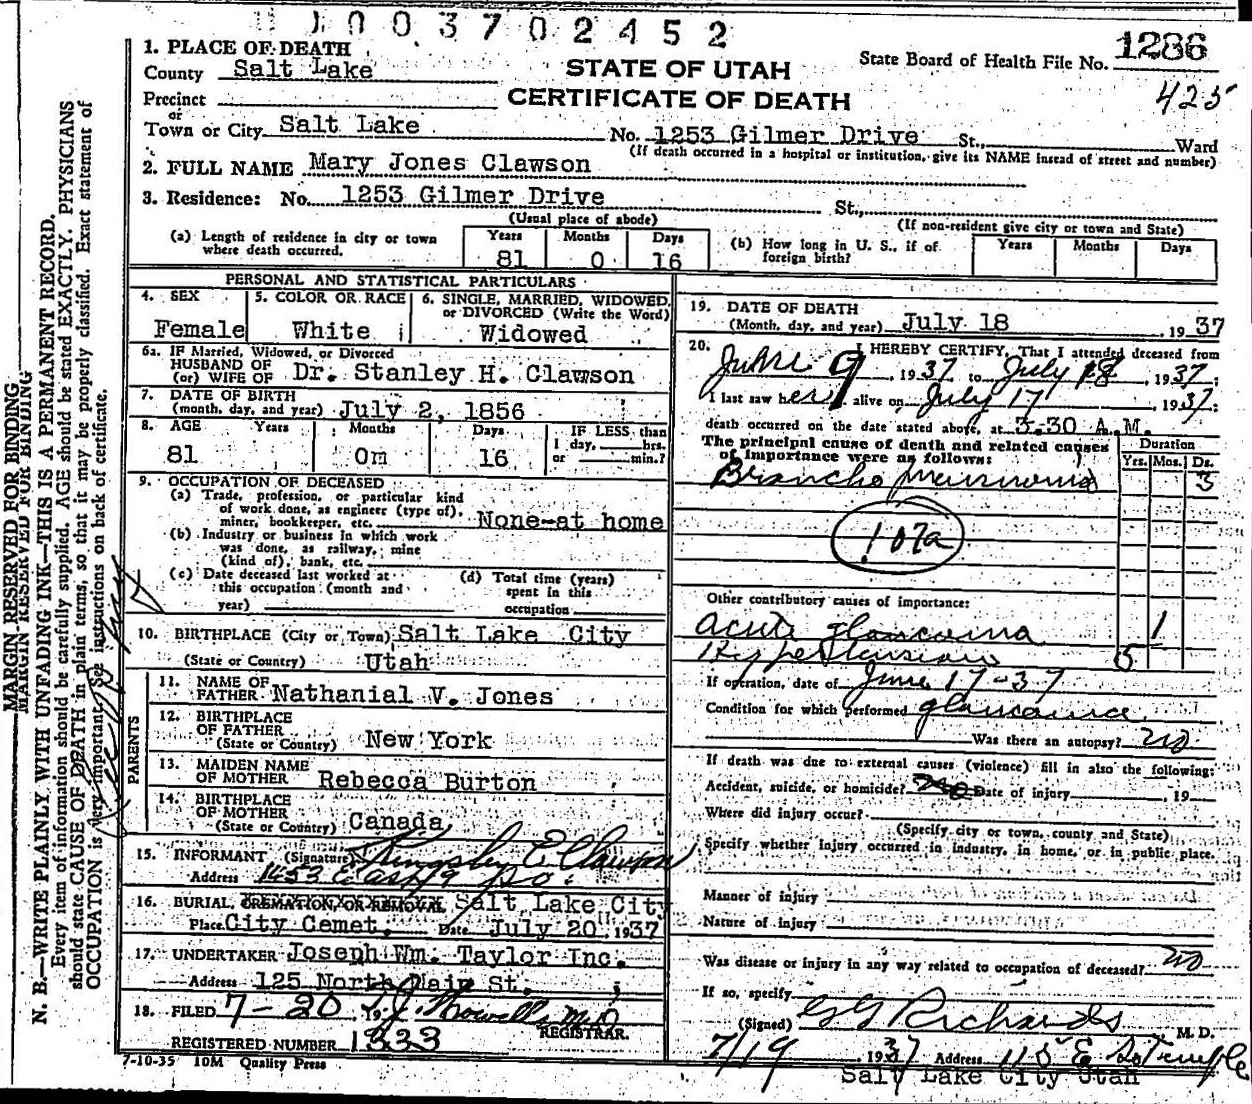 1003702452
1. PLACE OF DEATH
County Salt Lake
STATE OF UTAH
State Board of Health File No. 1286
CERTIFICATE OF DEATH
425
Precinct
or
Town or City Salt Lake No. 1253 Gilmer Drive St., Ward
(If death occurred in a hospital or institution, give its NAME instead of street and number)
2. FULL NAME Mary Jones Clawson
3. Residence: No. 1253 Gilmer Drive St.,
(Usual place of abode) (If non-resident give city or town and State)
(a) Length of residence in city or town where death occurred. Years 81 Months 0 Days 16
(b) How long in U. S., if of foreign birth? Years Months Days
PERSONAL AND STATISTICAL PARTICULARS
4. SEX Female
5. COLOR OR RACE White
6. SINGLE, MARRIED, WIDOWED, or DIVORCED (Write the Word) Widowed
6a. IF Married, Widowed, or Divorced
HUSBAND OF
(or) WIFE OF Dr. Stanley H. Clawson
7. DATE OF BIRTH
(month, day, and year) July 2, 1856
8. AGE Years Months Days IF LESS than
1 day, hrs.
or min.?
81 0m 16
9. OCCUPATION OF DECEASED
(a) Trade, profession, or particular kind
of work done, as engineer (type of),
miner, bookkeeper, etc. None-at home
(b) Industry or business in which work
was done, as railway, mine
(kind of), bank, etc.
(c) Date deceased last worked at
this occupation (month and
year)
(d) Total time (years)
spent in this
occupation
10. BIRTHPLACE (City or Town) Salt Lake City
(State or Country) Utah
PARENTS
11. NAME OF
FATHER Nathanial V. Jones
12. BIRTHPLACE
OF FATHER
(State or Country) New York
13. MAIDEN NAME
OF MOTHER Rebecca Burton
14. BIRTHPLACE
OF MOTHER
(State or Country) Canada
15. INFORMANT (Signature) Kingsley E Clawson
Address 1453 East 9 So.
16. BURIAL, CREMATION, OR REMOVAL Salt Lake City
Place City Cemet. Date July 20, 1937
17. UNDERTAKER Joseph Wm. Taylor Inc.
Address 125 North Main St.
18. FILED 7-20 19 Howells MD
REGISTRAR.
REGISTERED NUMBER 1333
7-10-35 10M Quality Press
19. DATE OF DEATH
(Month, day, and year) July 18, 1937
20. I HEREBY CERTIFY, That I attended deceased from
June 9, 1937 to July 18, 1937;
I last saw her alive on July 17, 1937;
death occurred on the date stated above, at 3:30 A.M.
The principal cause of death and related causes
of importance were as follows:
Duration
Yrs. Mos. Ds.
Broncho pneumonia 3
107a
Other contributory causes of importance:
Acute glaucoma 1
Hypertension 5
If operation, date of June 17-37
Condition for which performed glaucoma
Was there an autopsy? no
If death was due to external causes (violence) fill in also the following:
Accident, suicide, or homicide? no Date of injury , 19
Where did injury occur?
(Specify city or town, county and State)
Specify whether injury occurred in industry, in home, or in public place.
Manner of injury
Nature of injury
Was disease or injury in any way related to occupation of deceased? no
If so, specify
(Signed) G G Richards M. D.
7/19, 1937 Address 115 E So Temple
Salt Lake City Utah
MARGIN RESERVED FOR BINDING
MARGIN RESERVED FOR BINDING
N. B.—WRITE PLAINLY WITH UNFADING INK—THIS IS A PERMANENT RECORD.
Every item of information should be carefully supplied. AGE should be stated EXACTLY. PHYSICIANS
should state CAUSE OF DEATH in plain terms, so that it may be properly classified. Exact statement of
OCCUPATION is very important. See instructions on back of certificate.